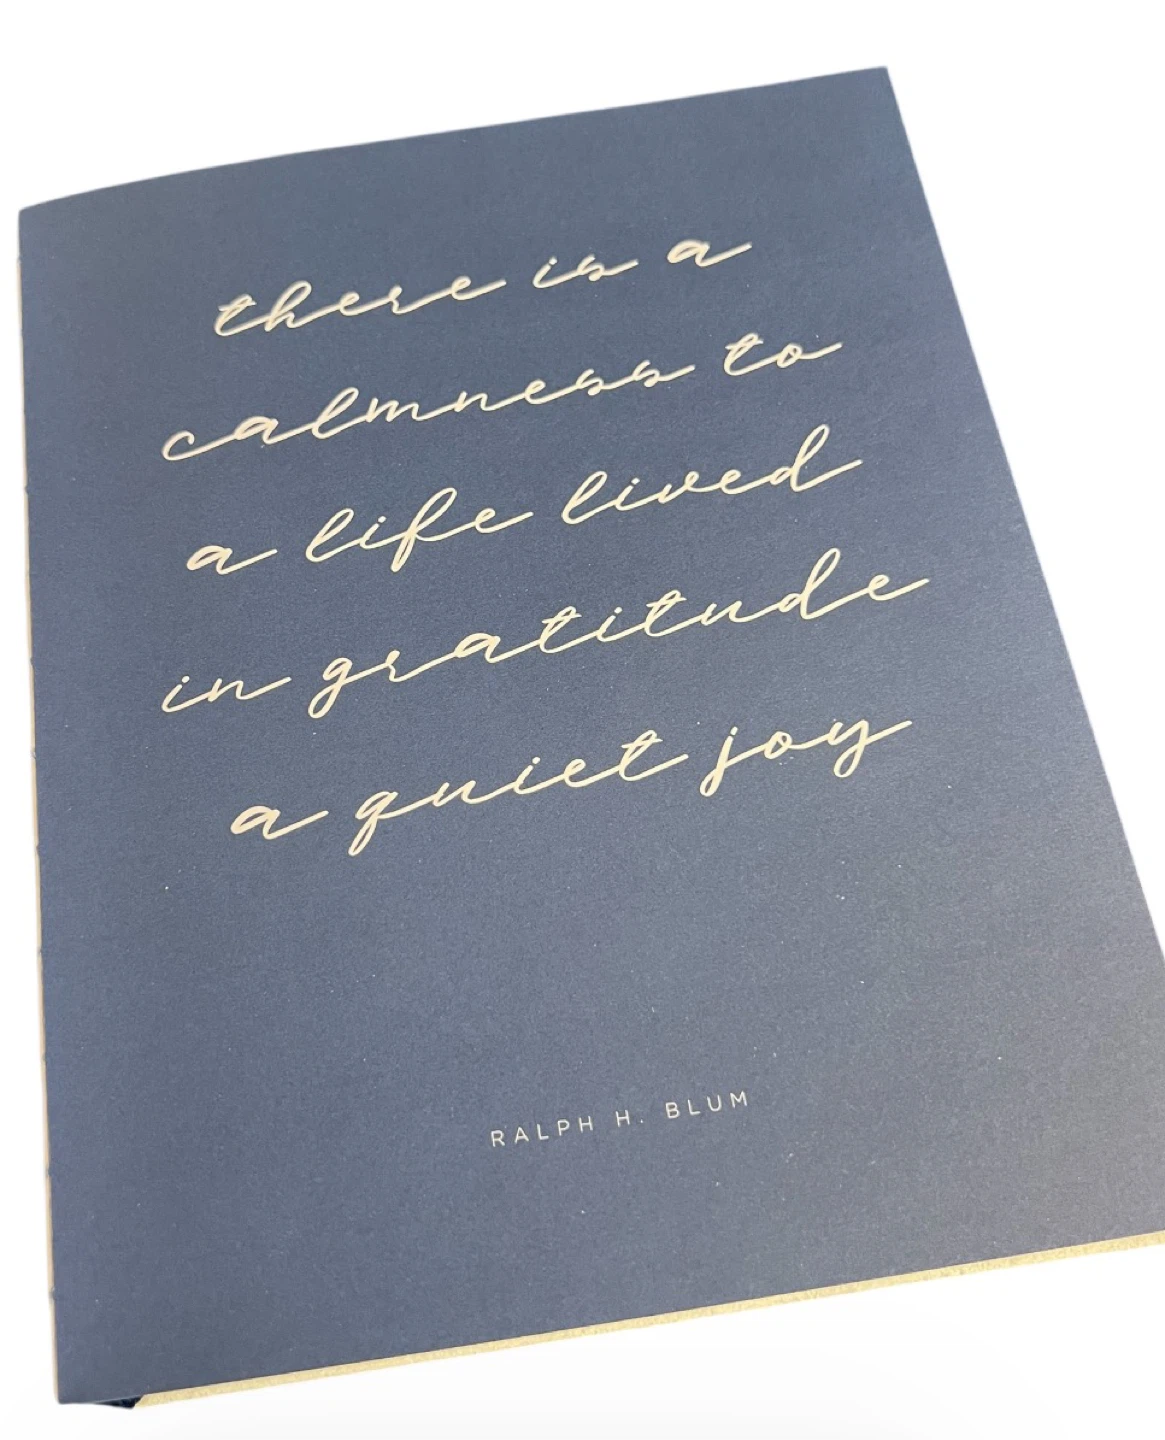 there is a
calmness to
a life lived
in gratitude
a quiet joy
RALPH H. BLUM